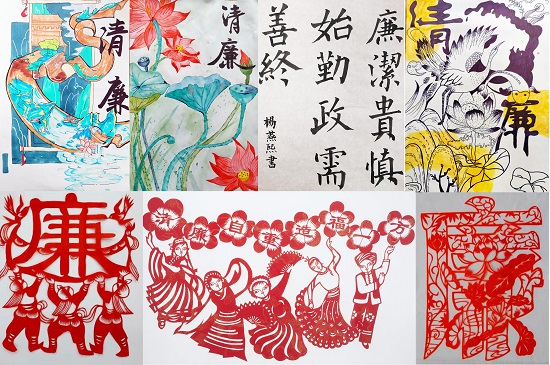 清廉
清廉
廉潔貴慎
始勤政需
善終
楊燕熙書
清廉
廉
廉自重造福一方
廉